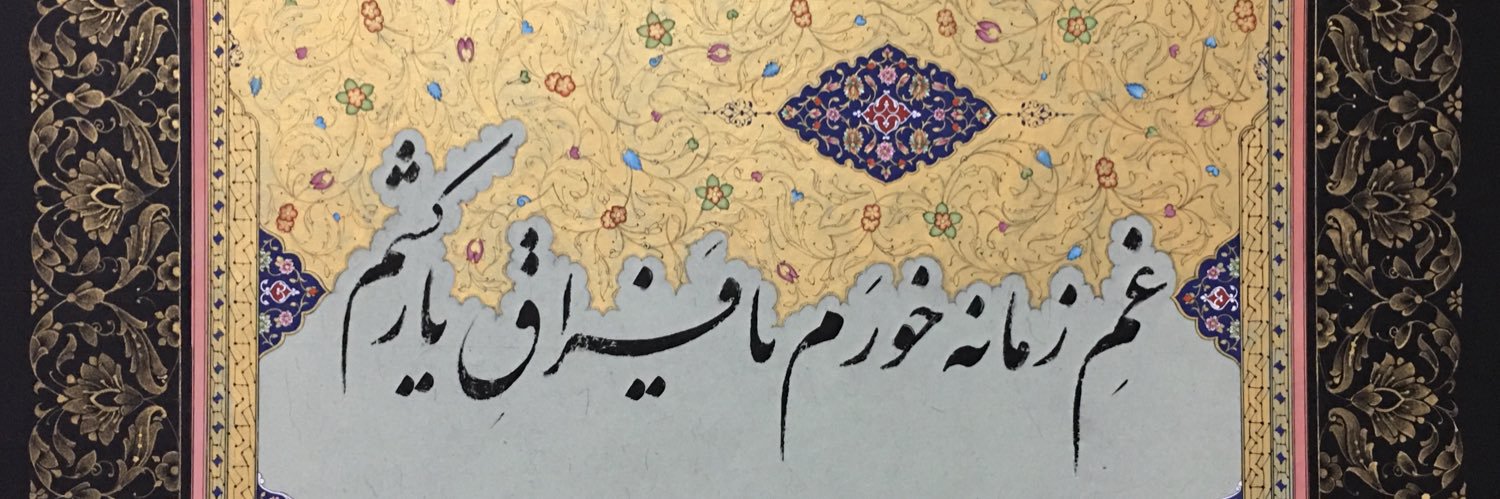 غمِ زمانه خورَم یا فَراقِ یار کشم